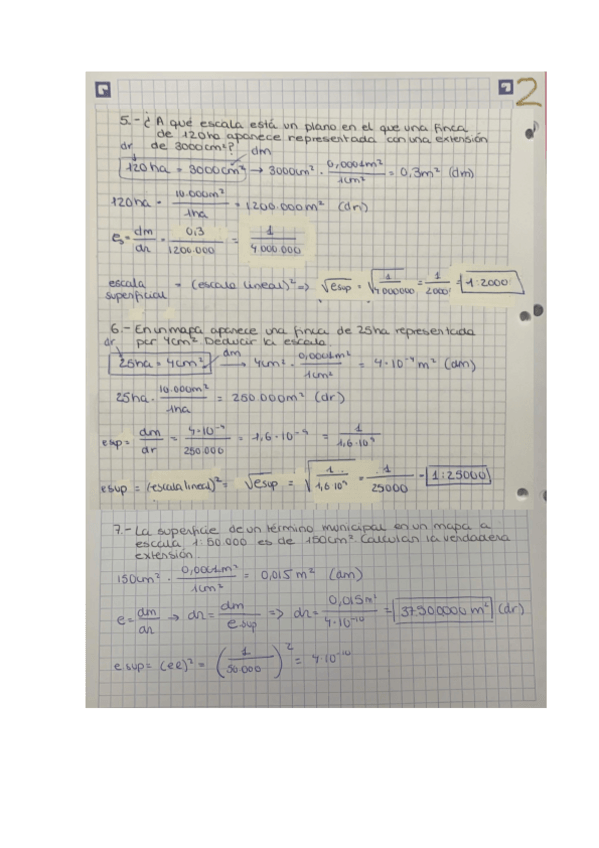 2
5.- ¿A qué escala está un plano en el que una finca
de 120ha aparece representada con una extensión
dr de 3000cm²? dm
120ha = 3000cm² → 3000cm² · 0,0001m²/1cm² = 0,3m² (dm)
120ha · 10.000m²/1ha = 1200.000m² (dr)
es = dm/dr = 0,3/1200.000 = 1/4000.000
escala superficial = (escala lineal)² => √esup = √1/4000000 = 1/2000 = 1:2000
6.- En un mapa aparece una finca de 25ha representada
dr por 4cm². Deducir la escala.
25ha = 4cm² dm → 4cm² · 0,0001m²/1cm² = 4·10⁻⁴m² (dm)
25ha · 10.000m²/1ha = 250.000m² (dr)
esup = dm/dr = 4·10⁻⁴/250.000 = 1,6·10⁻⁹ = 1/1,6·10⁹
esup = (escala lineal)² = √esup = √1/1,6·10⁹ = 1/25000 = 1:25000
7.- La superficie de un término municipal en un mapa a
escala 1:50.000 es de 150cm². Calcular la verdadera
extensión.
150cm² · 0,0001m²/1cm² = 0,015m² (dm)
e = dm/dr → dr = dm/esup => dr = 0,015m²/4·10⁻¹⁰ = 37.500.000 m² (dr)
esup = (ee)² = (1/50.000)² = 4·10⁻¹⁰